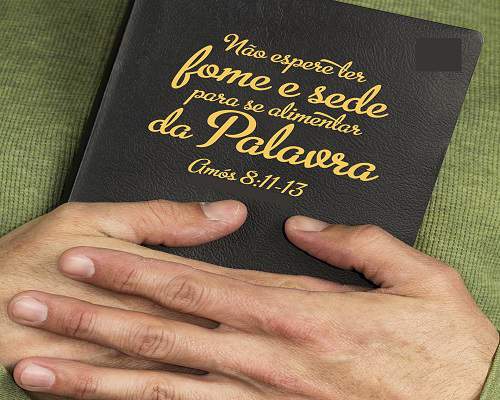 Não espere ter
fome e sede
para se alimentar
da Palavra
Amós 8:11-13